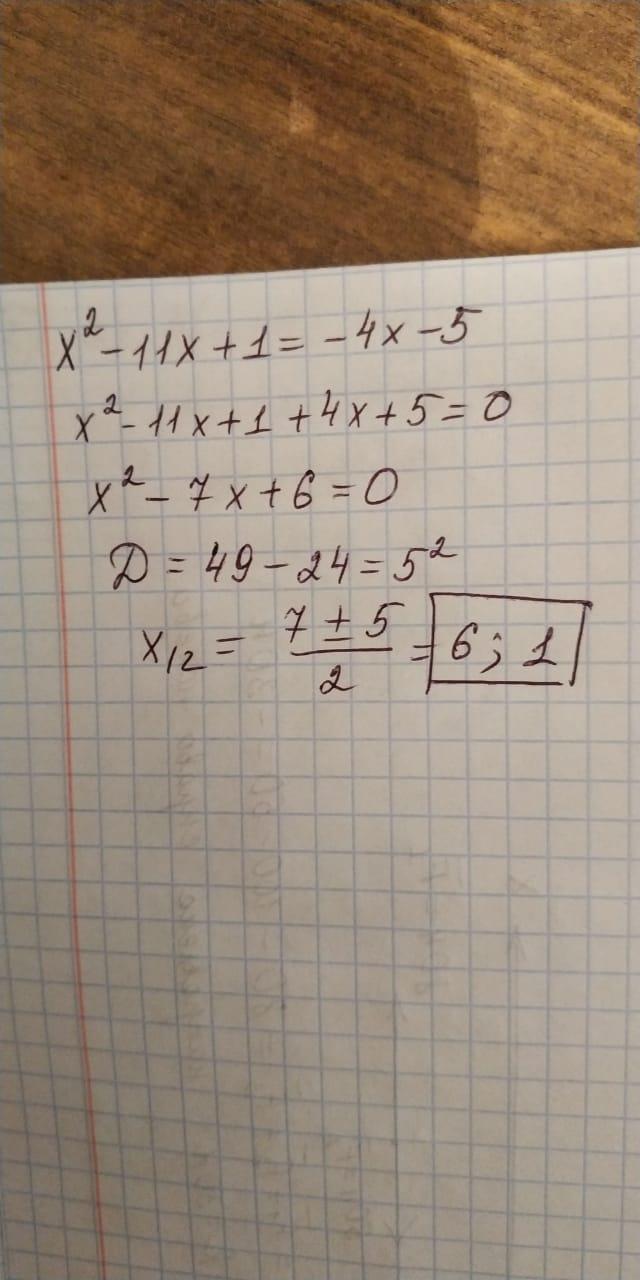 x² - 11x + 1 = -4x - 5
x² - 11x + 1 + 4x + 5 = 0
x² - 7x + 6 = 0
Д = 49 - 24 = 5²
x₁₂ = (7 ± 5)/2 = 6; 1